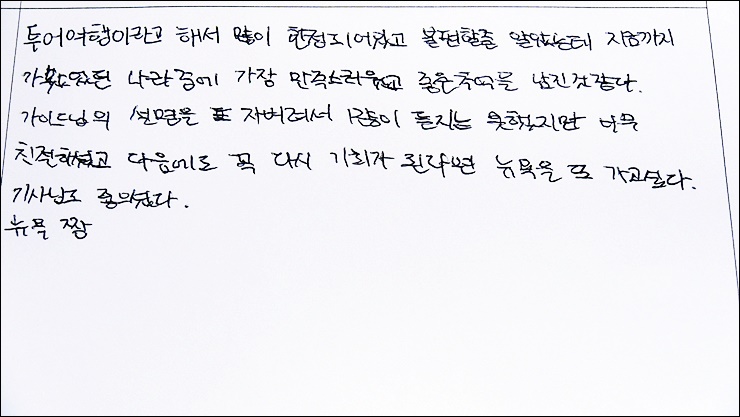 투어여행이라고 해서 많이 한정되어있고 불편할줄 알았는데 지금까지
가봤었던 나라중에 가장 만족스러웠고 좋은추억을 남긴것같다.
가이드님의 설명을 자버려서 많이 듣지는 못했지만 너무
친절하셨고 다음에도 꼭 다시 기회가 된다면 뉴욕을 또 가고싶다.
기사님도 좋으셨다.
뉴욕 짱